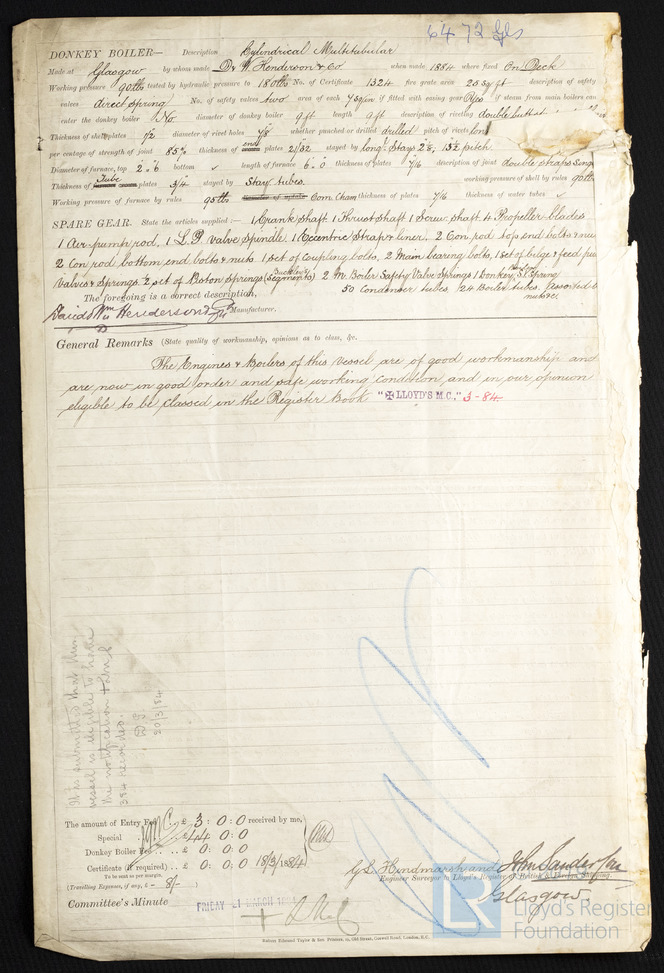 6472 Gls
DONKEY BOILER— Description Cylindrical Multitubular
Made at Glasgow by whom made D & W Henderson & Co. when made 1884 where fixed On Deck
Working pressure 90lbs tested by hydraulic pressure to 180lbs No. of Certificate 1324 fire grate area 25 sq ft description of safety
valves direct spring No. of safety valves two area of each 7 sq in if fitted with easing gear Yes if steam from main boilers can
enter the donkey boiler No diameter of donkey boiler 9 ft length 9 ft description of riveting double butt
Thickness of shell plates 1/2 diameter of rivet holes 7/8 whether punched or drilled drilled pitch of rivets
per centage of strength of joint 85% thickness of end plates 21/32 stayed by long'l Stays 2 1/8, 15 1/2 pitch
Diameter of furnace, top 2.6 bottom length of furnace 6.0 thickness of plates 7/16 description of joint double straps Sing
Thickness of Tube plates 3/4 stayed by Stay tubes. working pressure of shell by rules 90lbs
Working pressure of furnace by rules 95lbs Com Cham thickness of plates 7/16 thickness of water tubes
SPARE GEAR. State the articles supplied :— 1 Crank shaft 1 Thrust shaft 1 Screw shaft 4 Propeller blades
1 Air pump rod, 1 L.P. Valve spindle. 1 Eccentric Strap & liner. 2 Con rod top end bolts & nuts
2 Con rod bottom end bolts & nuts 1 set of Coupling bolts, 2 Main bearing bolts, 1 set of bilge & feed pump
Valves & Springs. 1/2 set of Piston Springs (Buckley's segments) 2 M. Boiler Safety Valve Springs 1 Donkey S.V. Spring
50 Condenser tubes 24 Boiler tubes. Assorted b
nuts &c
The foregoing is a correct description,
David & Wm Henderson & Co Manufacturer.
General Remarks (State quality of workmanship, opinions as to class, &c.
The Engines & Boilers of this vessel are of good workmanship and
are now in good order and safe working condition, and in our opinion
eligible to be classed in the Register Book "✠ LLOYD'S M.C." 3-84
It is submitted that this
vessel is eligible to have
the notification + LMC
3.84 recorded.
20/3/84
The amount of Entry Fee .. £ 3 : 0 : 0 received by me,
Special .. £ 44 0 : 0
Donkey Boiler Fee .. £ 0 : 0 : 0
Certificate (if required) .. £ 0 : 0 : 0 18/3/1884
To be sent as per margin.
(Travelling Expenses, if any, £ — 8/-)
G.S. Hindmarsh and John Sanderson
Engineer Surveyor to Lloyd's Register of British & Foreign Shipping.
Glasgow
Committee's Minute FRIDAY 21 MARCH
LR Lloyd's Register
Foundation
Robert Edmund Taylor & Son Printers, 19, Old Street, Goswell Road, London, E.C.